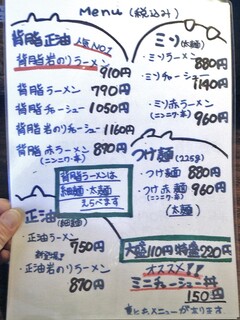 Menu (税込み)
背脂正油 人気NO.1
背脂岩のりラーメン
910円
背脂ラーメン 790円
背脂チャーシュー 1050円
岩のりチャーシュー 1160円
背脂赤ラーメン 890円
(ニンニク・辛)
背脂ラーメンは
細麺・太麺
えらべます
正油(細麺)
正油ラーメン
750円
正油岩のりラーメン
870円
ミソ(太麺)
・ミソラーメン 880円
・ミソチャーシュー
1140円
・ミソ赤ラーメン 960円
(ニンニク・辛)
つけ麺(225g)
・つけ麺 880円
・つけ赤麺 960円
(ニンニク・辛)
(太麺)
大盛110円 特盛220円
オススメ!!
ミニチャーシュー丼
150円
裏にもメニューがあります